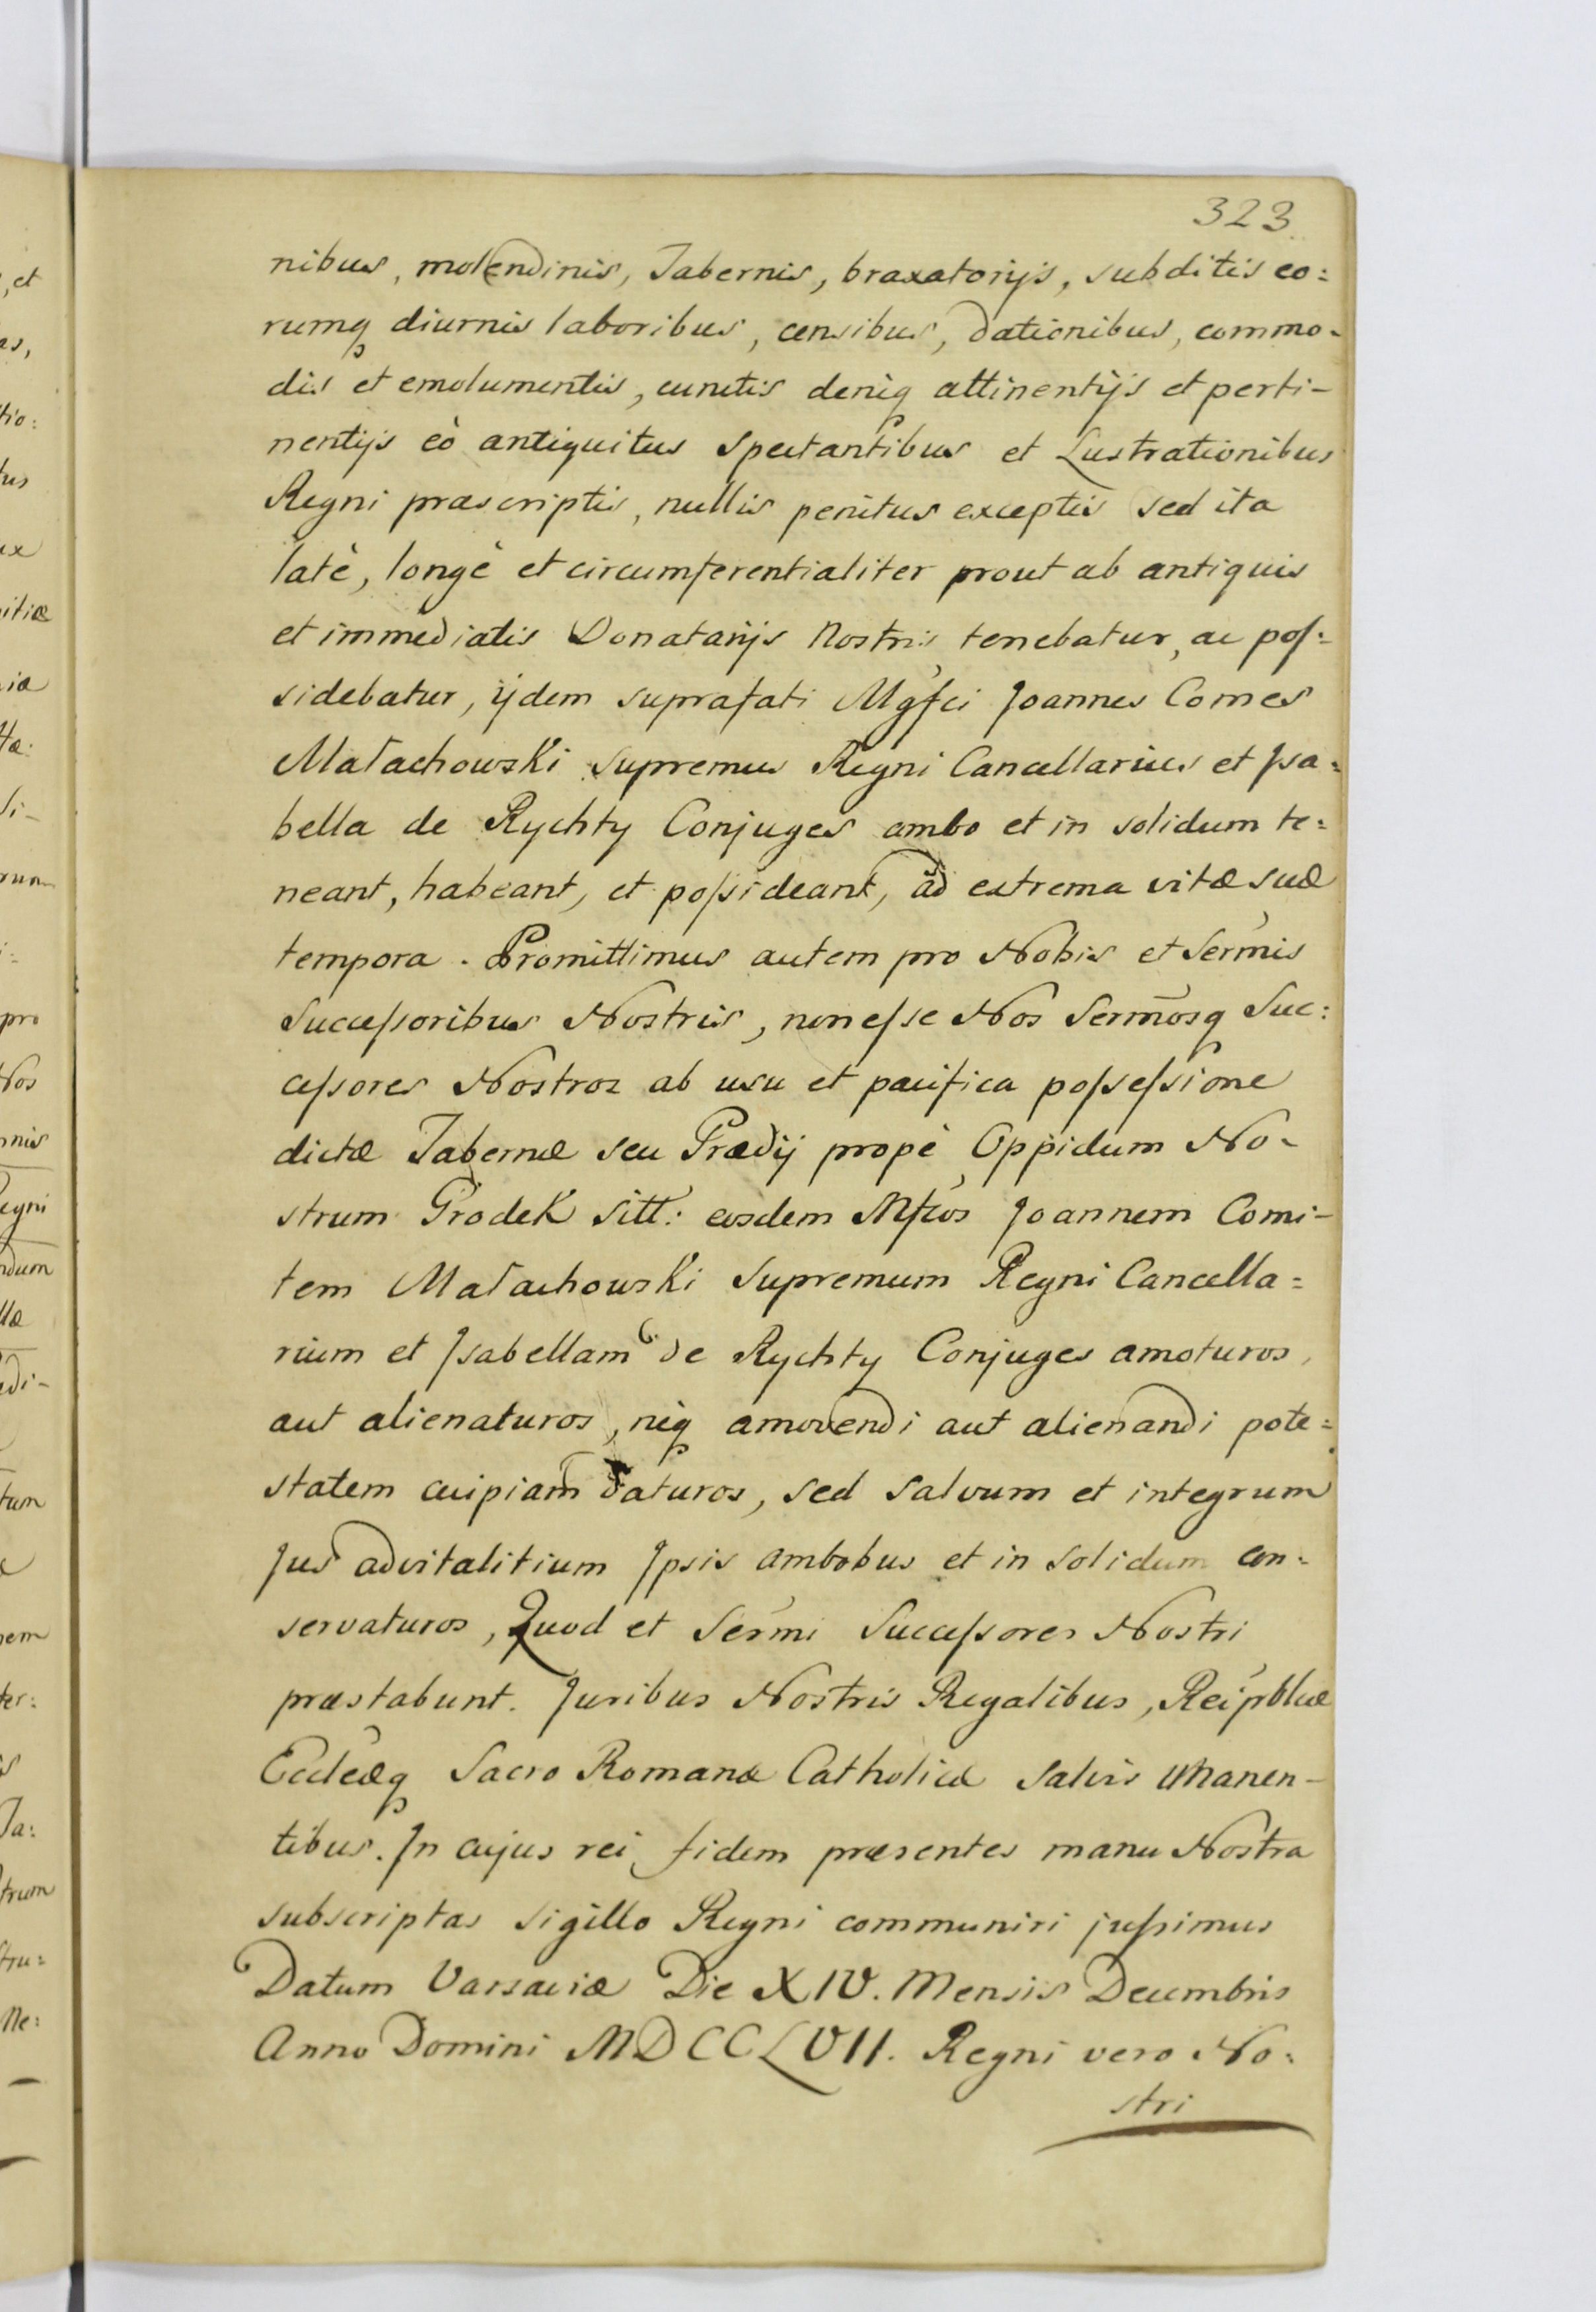 323
nibus, molendinis, Tabernis, braxatorijs, subditis eo:
rumq diurnis laboribus, censibus, dationibus, commo-
dis et emolumentis, cunctis deniq attinentijs et perti-
nentijs eò antiquitus spectantibus et Lustrationibus
Regni præscriptis, nullis penitus exceptis sed ita
latè, longè et circumferentialiter prout ab antiquis
et immediatis Donatarijs Nostris tenebatur, ac pos:
sidebatur, ijdem suprafati Mgfci Joannes Comes
Małachowski Supremus Regni Cancellarius et Jsa:
bella de Rychty Conjuges ambo et in solidum te:
neant, habeant, et possideant, ad extrema vitæ suæ
tempora. Promittimus autem pro Nobis et Sermis
Successoribus Nostris, non esse Nos Sermosq Suc:
cessores Nostros ab usu et pacifica possessione
dictæ Tabernæ seu Prædij propè Oppidum No-
strum Grodek sitt: eosdem Mfcos Joannem Comi-
tem Małachowski Supremum Regni Cancella=
rium et Jsabellam de Rychty Conjuges amoturos,
aut alienaturos, neq amovendi aut alienandi pote=
statem cuipiam daturos, sed salvum et integrum
Jus advitalitium Jpsis ambobus et in solidum con-
servaturos, Quod et Sermi Successores Nostri
præstabunt. Juribus Nostris Regalibus, Reipblicæ
Eccleæq Sacro Romanæ Catholicæ salvis manen-
tibus. Jn cujus rei fidem præsentes manu Nostra
subscriptas sigillo Regni communiri jussimus
Datum Varsaviæ Die XIV. Mensis Decembris
Anno Domini MDCCLVII. Regni vero No:
stri